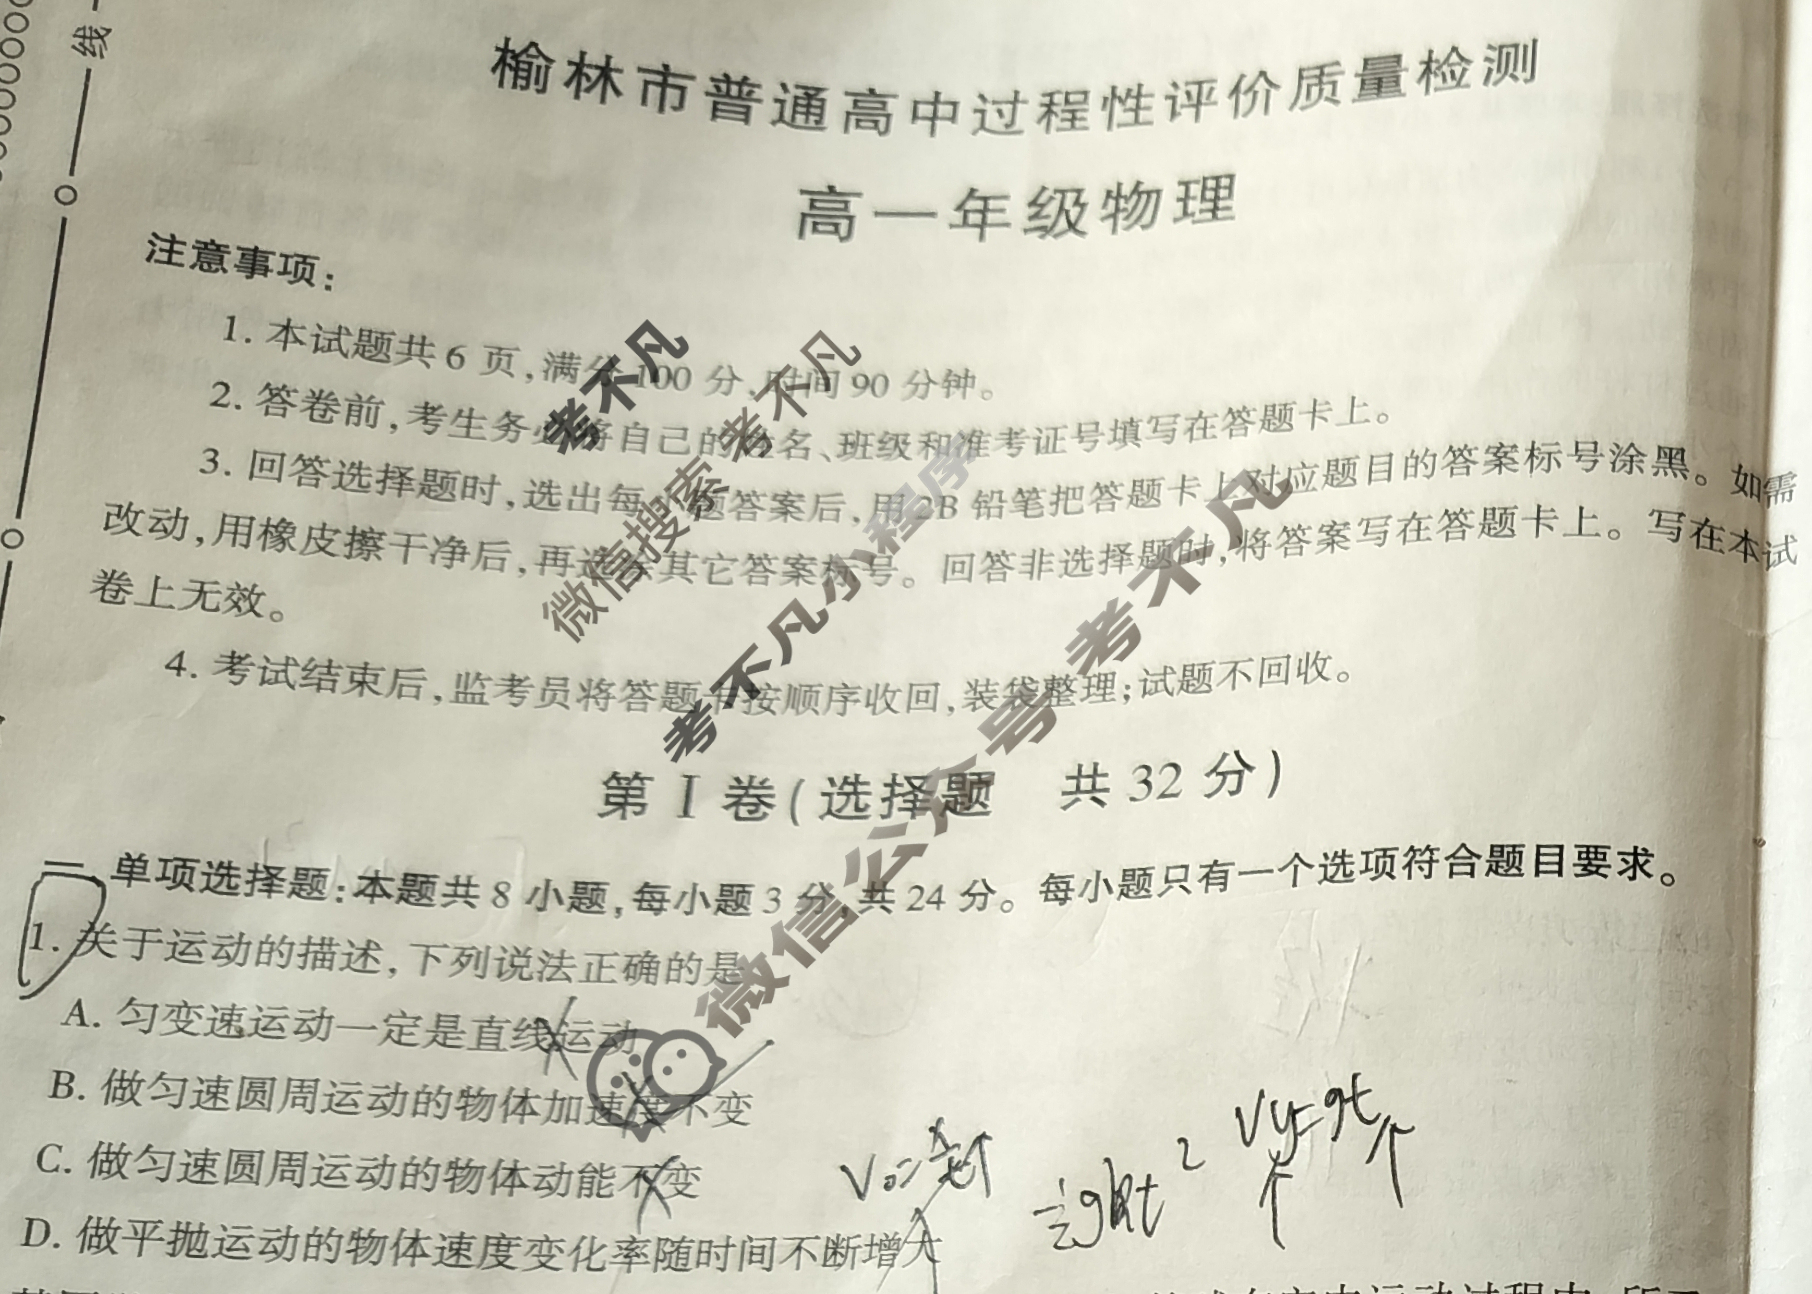 线
榆林市普通高中过程性评价质量检测
高一年级物理
注意事项：
1. 本试题共6页，满分100分，时间90分钟。
2. 答卷前，考生务必将自己的姓名、班级和准考证号填写在答题卡上。
3. 回答选择题时，选出每小题答案后，用2B铅笔把答题卡上对应题目的答案标号涂黑。如需
改动，用橡皮擦干净后，再选涂其它答案标号。回答非选择题时，将答案写在答题卡上。写在本试
卷上无效。
4. 考试结束后，监考员将答题卡按顺序收回，装袋整理；试题不回收。
第Ⅰ卷（选择题　共32分）
一 单项选择题：本题共8小题，每小题3分，共24分。每小题只有一个选项符合题目要求。
1. 关于运动的描述，下列说法正确的是
A. 匀变速运动一定是直线运动
B. 做匀速圆周运动的物体加速度不变
C. 做匀速圆周运动的物体动能不变
D. 做平抛运动的物体速度变化率随时间不断增大
Vy=gt
考不凡
微信搜索考不凡
考不凡小程序
微信公众号考不凡